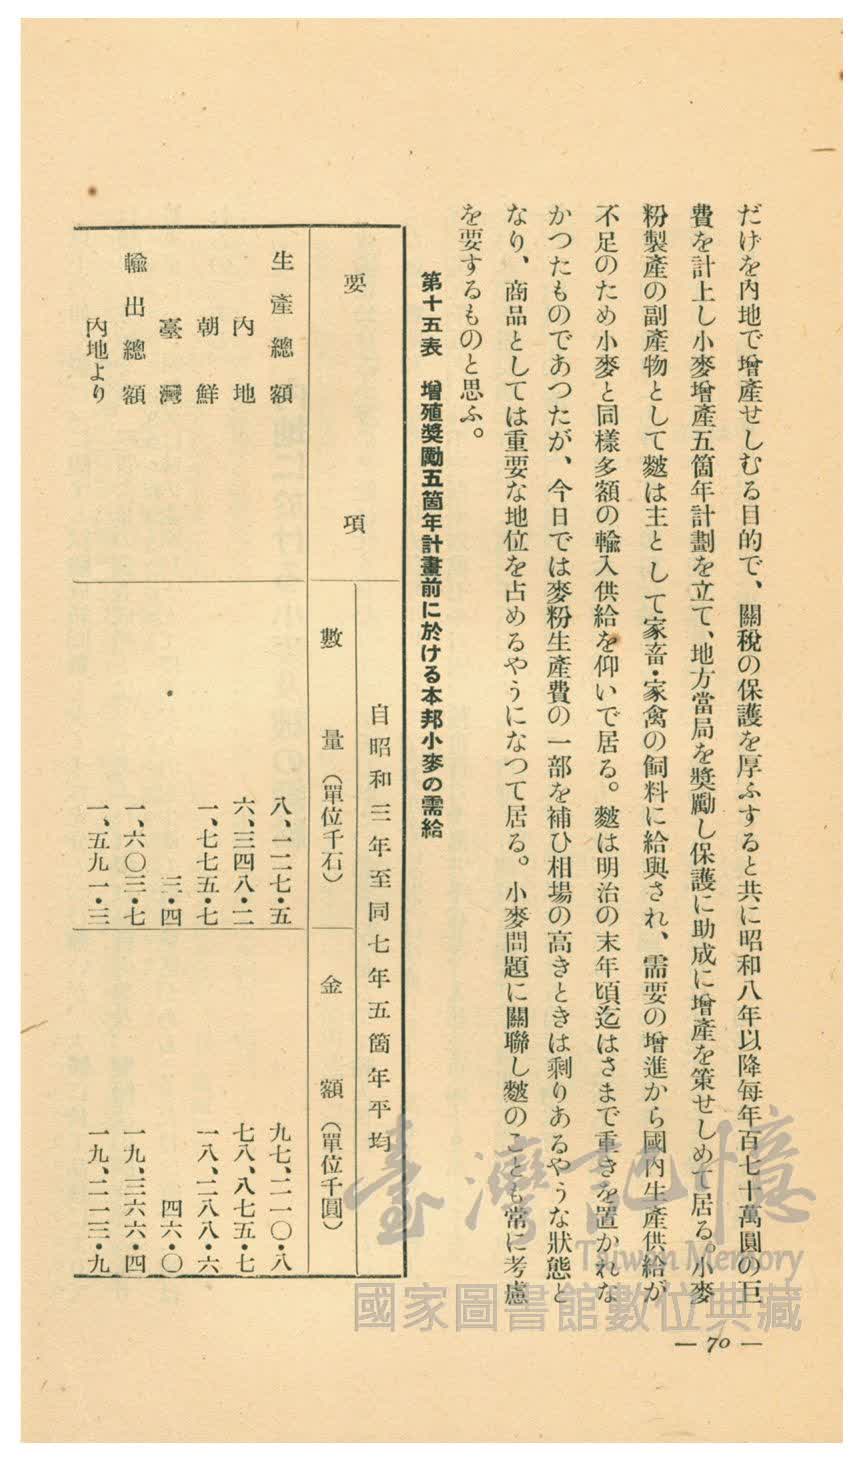 だけを內地で增產せしむる目的で、關稅の保護を厚ふすると共に昭和八年以降每年百七十萬圓の巨
費を計上し小麥增產五箇年計劃を立て、地方當局を奬勵し保護に助成に增產を策せしめて居る。小麥
粉製產の副產物として麬は主として家畜・家禽の飼料に給與され、需要の增進から國內生產供給が
不足のため小麥と同樣多額の輸入供給を仰いで居る。麬は明治の末年頃迄はさまで重きを置かれな
かつたものであつたが、今日では麥粉生產費の一部を補ひ相場の高きときは剩りあるやうな狀態と
なり、商品としては重要な地位を占めるやうになつて居る。小麥問題に關聯し麬のことも常に考慮
を要するものと思ふ。
第十五表 增殖奬勵五箇年計畫前に於ける本邦小麥の需給
要 項
自昭和三年至同七年五箇年平均
數量(單位千石) 金額(單位千圓)
生產總額 八、一二七・五 九七、二一〇・八
內地 六、三四八・二 七八、八七五・七
朝鮮 一、七七五・七 一八、二八八・六
臺灣 三・四 四六・〇
輸出總額 一、六〇三・七 一九、三六六・四
內地より 一、五九一・三 一九、二一三・九
— 70 —
臺灣記憶
Taiwan Memory
國家圖書館數位典藏